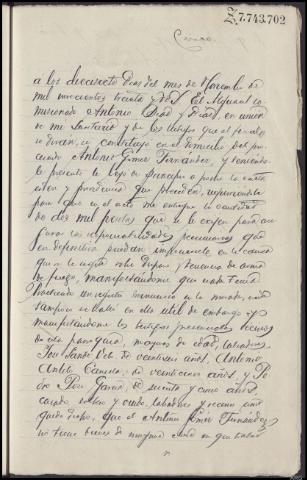 Z.7.743.702
a los dieciseis dias del mes de Noviembre de
mil novecientos treinta y dos. El Alguacil co
misionado Antonio Diaz y Diaz, en union
de mi Secretario y de los testigos que al final
se diran, se constituyó en el domicilio del pro
cesado Antonio Gomez Fernandez, y teniendo
le presente le leyó de principio a fin la carta
orden y providencia que preceden, requiriendole
para que en el acto me entregue la cantidad
de dos mil pesetas que se le exigen para ase
gurar las responsabilidades pecuniarias que
en definitiva puedan imponersele en la causa
que se le sigue sobre disparo y tenencia de arma
de fuego, manifestandome que nada tenia
Practicado un registro minucioso en la morada, en
tampoco se halló en ella util de embargo y
manifestandome los testigos presenciales vecinos
de esta parroquia, mayores de edad, labradores,
José de veintiseis años, Antonio
de veinticinco años y Pe
dro Garcia de treinta y cinco años,
casado y viudo, labradores y vecinos
que el Antonio Gomez Fernandez
no tiene bienes de ninguna clase en que trabar